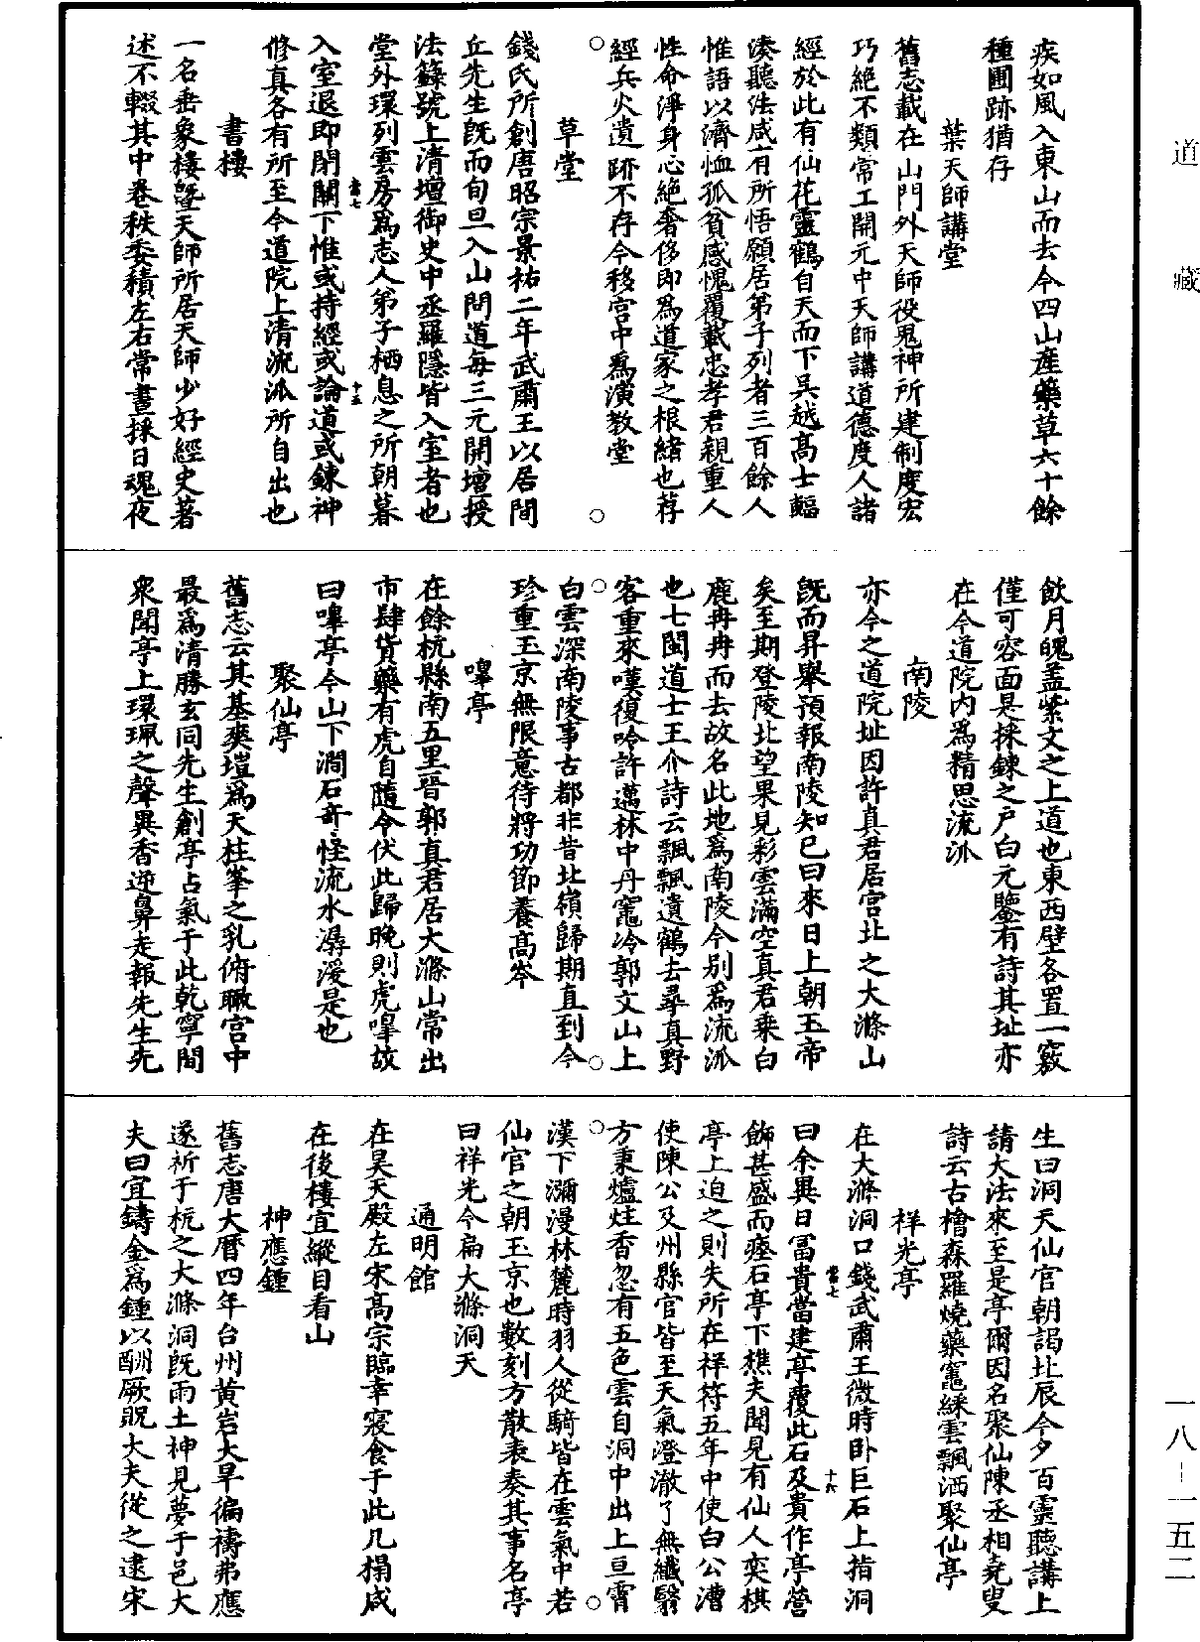 道藏
疾如風入東山而去今四山產藥草六十餘
種圃跡猶存
葉天師講堂
舊志載在山門外天師役鬼神所建制度宏
巧絕不類常工開元中天師講道德度人諸
經於此有仙花靈鶴自天而下吳越高士輻
湊聽法咸有所悟願居弟子列者三百餘人
惟語以濟恤孤貧感愧覆載忠孝君親重人
性命淨身心絕奢侈即為道家之根緒也荐
經兵火遺跡不存今移宮中為演教堂
草堂
錢氏所創唐昭宗景祐二年武肅王以居閭
丘先生既而旬旦入山問道每三元開壇授
法籙號上清壇御史中丞羅隱皆入室者也
堂外環列雲房為志人弟子栖息之所朝暮
入室退即閉關下惟或持經或論道或鍊神
修真各有所至今道院上清流派所自出也
書樓
一名垂象樓暨天師所居天師少好經史著
述不輟其中卷秩委積左右常晝採日魂夜
飲月魄蓋紫文之上道也東西壁各置一竅
僅可容面是採鍊之戶白元鑒有詩其址亦
在今道院內為精思流派
南陵
亦今之道院址因許真君居宮北之大滌山
既而昇舉預報南陵知己曰來日上朝玉帝
矣至期登陵北望果見彩雲滿空真君乘白
鹿冉冉而去故名此地為南陵今別為流派
也七閩道士王介詩云飄飄遺鶴去尋真野
客重來嘆復吟許邁林中丹竈冷郭文山上
白雲深南陵事古都非昔北嶺歸期直到今
珍重玉京無限意待將功節養高岑
嘷亭
在餘杭縣南五里晉郭真君居大滌山常出
市肆貨藥有虎自隨令伏此歸晚則虎嘷故
曰嘷亭今山下澗石奇怪流水潺湲是也
聚仙亭
舊志云其基爽塏為天柱峯之乳俯瞰宮中
最為清勝玄同先生創亭占氣于此乾寧間
眾聞亭上環珮之聲異香迎鼻走報先生先
生曰洞天仙官朝謁北辰今夕百靈聽講上
請大法來至是亭爾因名聚仙陳丞相堯叟
詩云古檜森羅燒藥竈綵雲飄洒聚仙亭
祥光亭
在大滌洞口錢武肅王微時卧巨石上指洞
曰余異日富貴當建亭覆此石及貴作亭營
飾甚盛而瘞石亭下樵夫聞見有仙人奕棋
亭上迫之則失所在祥符五年中使白公漕
使陳公及州縣官皆至天氣澄澈了無纖翳
方秉爐炷香忽有五色雲自洞中出上亘霄
漢下瀰漫林麓時羽人從騎皆在雲氣中若
仙官之朝玉京也數刻方散表奏其事名亭
曰祥光今扁大滌洞天
通明館
在昊天殿左宋高宗臨幸寢食于此几榻咸
在後樓宜縱目看山
神應鍾
舊志唐大曆四年台州黃岩大旱徧禱弗應
遂祈于杭之大滌洞既雨土神見夢于邑大
夫曰宜鑄金為鍾以酬厥貺大夫從之逮宋
一八-一五二